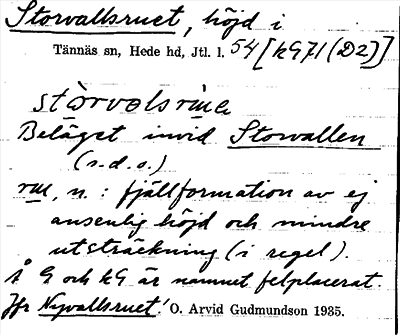 Storvallsruet, höjd i
Tännäs sn, Hede hd, Jtl. l. 54 [kG71 (D2)]
Beläget invid Storvallen
(s.d.o.)
n. : fjällformation av ej
ansenlig höjd och mindre
utsträckning (i regel).
Å G och kG är namnet felplacerat.
Jfr Nyvallsruet! O. Arvid Gudmundson 1935.